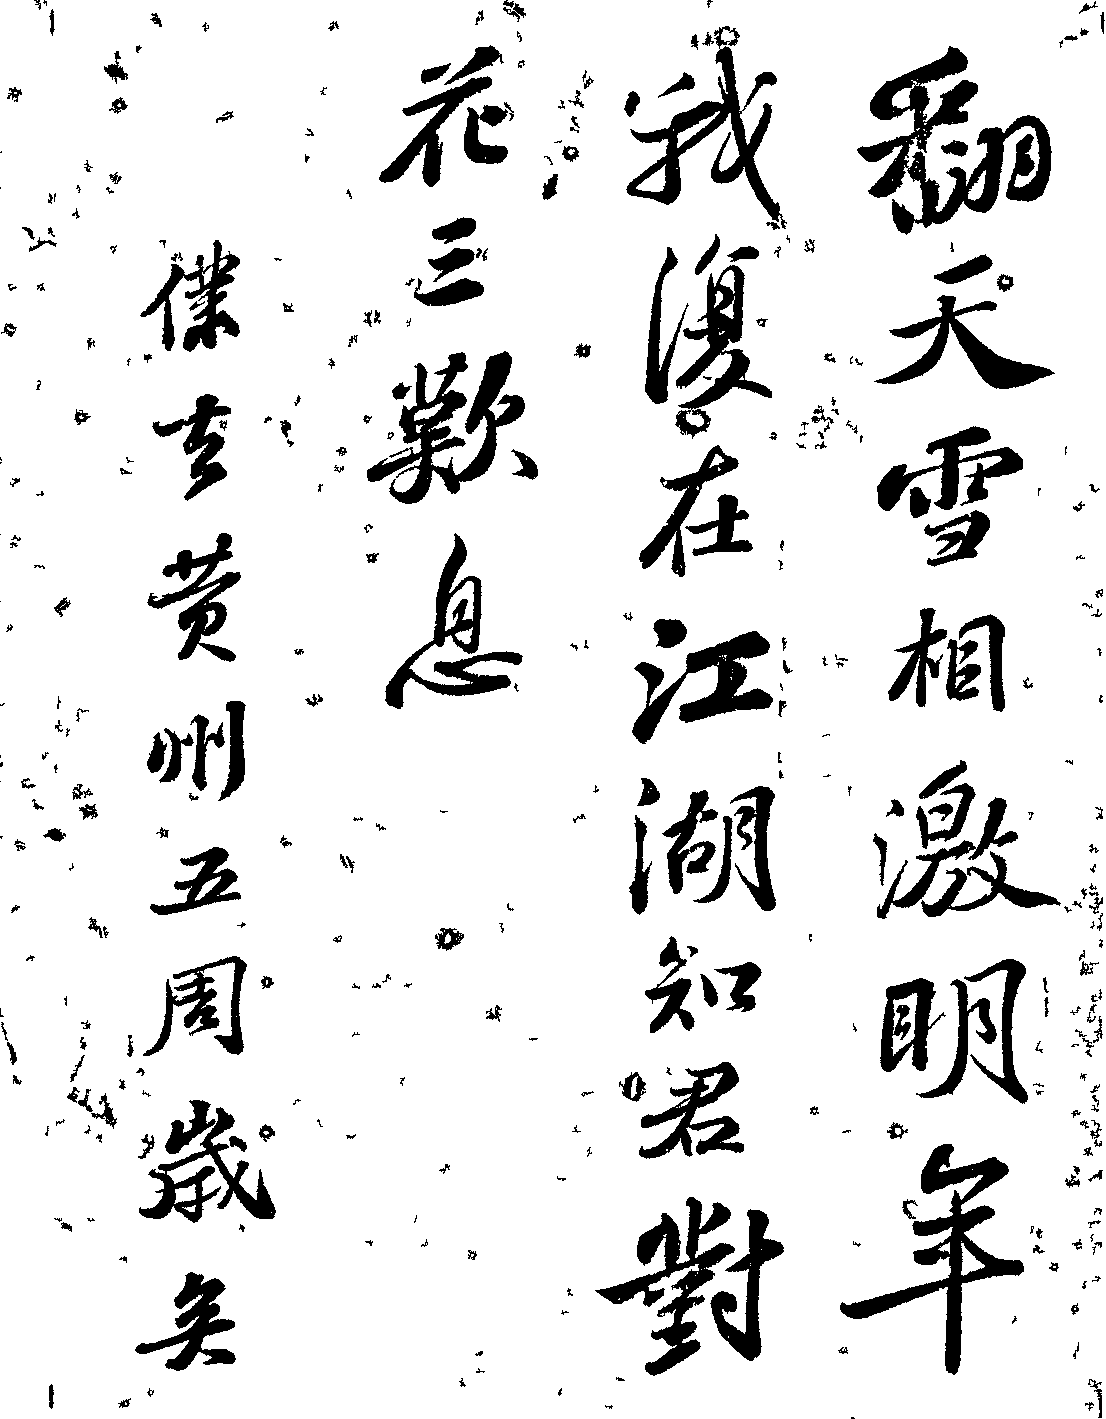 翻天雪相激明年
我復在江湖知君對
花三歎息
僕去黃州五周歲矣